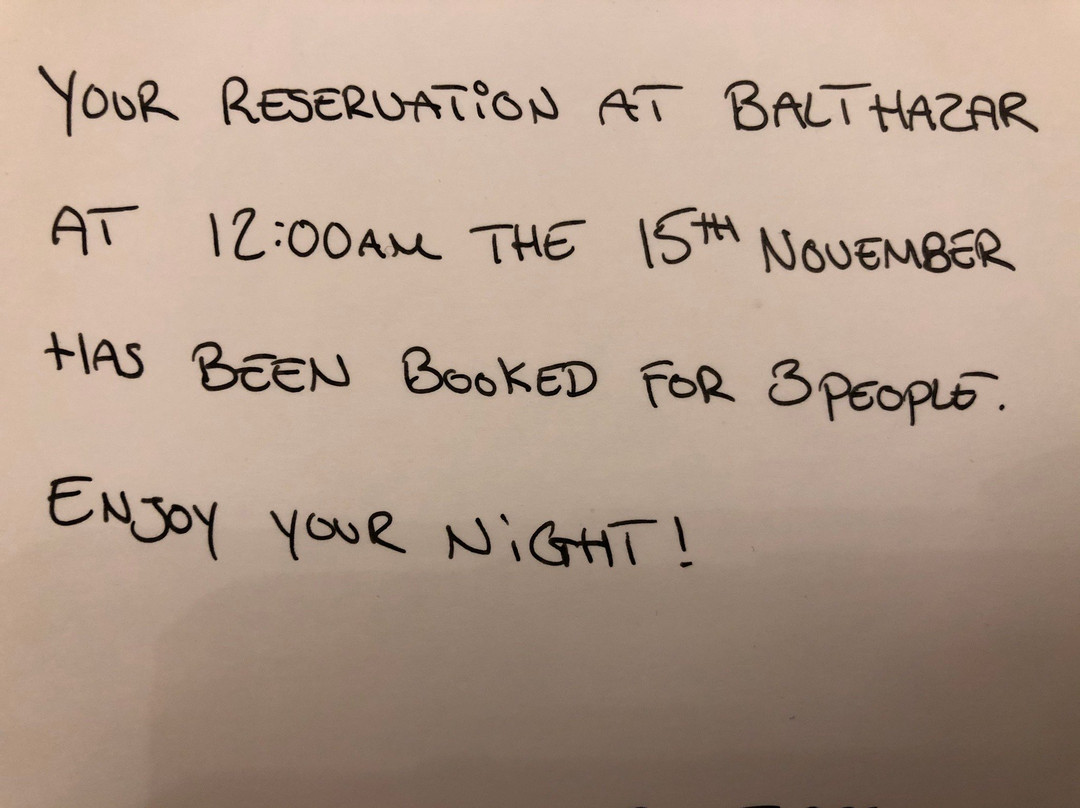 YOUR RESERVATION AT BALTHAZAR
AT 12:00AM THE 15TH NOVEMBER
HAS BEEN BOOKED FOR 3 PEOPLE.
ENJOY YOUR NIGHT!